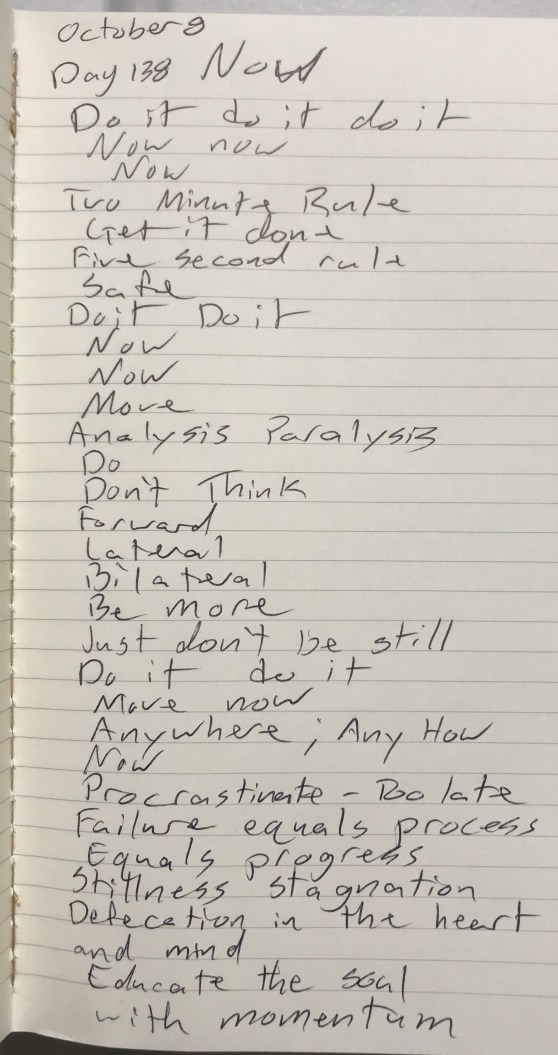 October 8
Day 138 Now
Do it do it do it
Now now
Now
Two Minute Rule
Get it done
Five second rule
Safe
Do it Do it
Now
Now
Move
Analysis Paralysis
Do
Don't Think
Forward
Lateral
Bilateral
Be more
Just don't be still
Do it do it
Move now
Anywhere ; Any How
Now
Procrastinate - Too late
Failure equals process
Equals progress
Stillness stagnation
Defecation in the heart
and mind
Educate the soul
with momentum